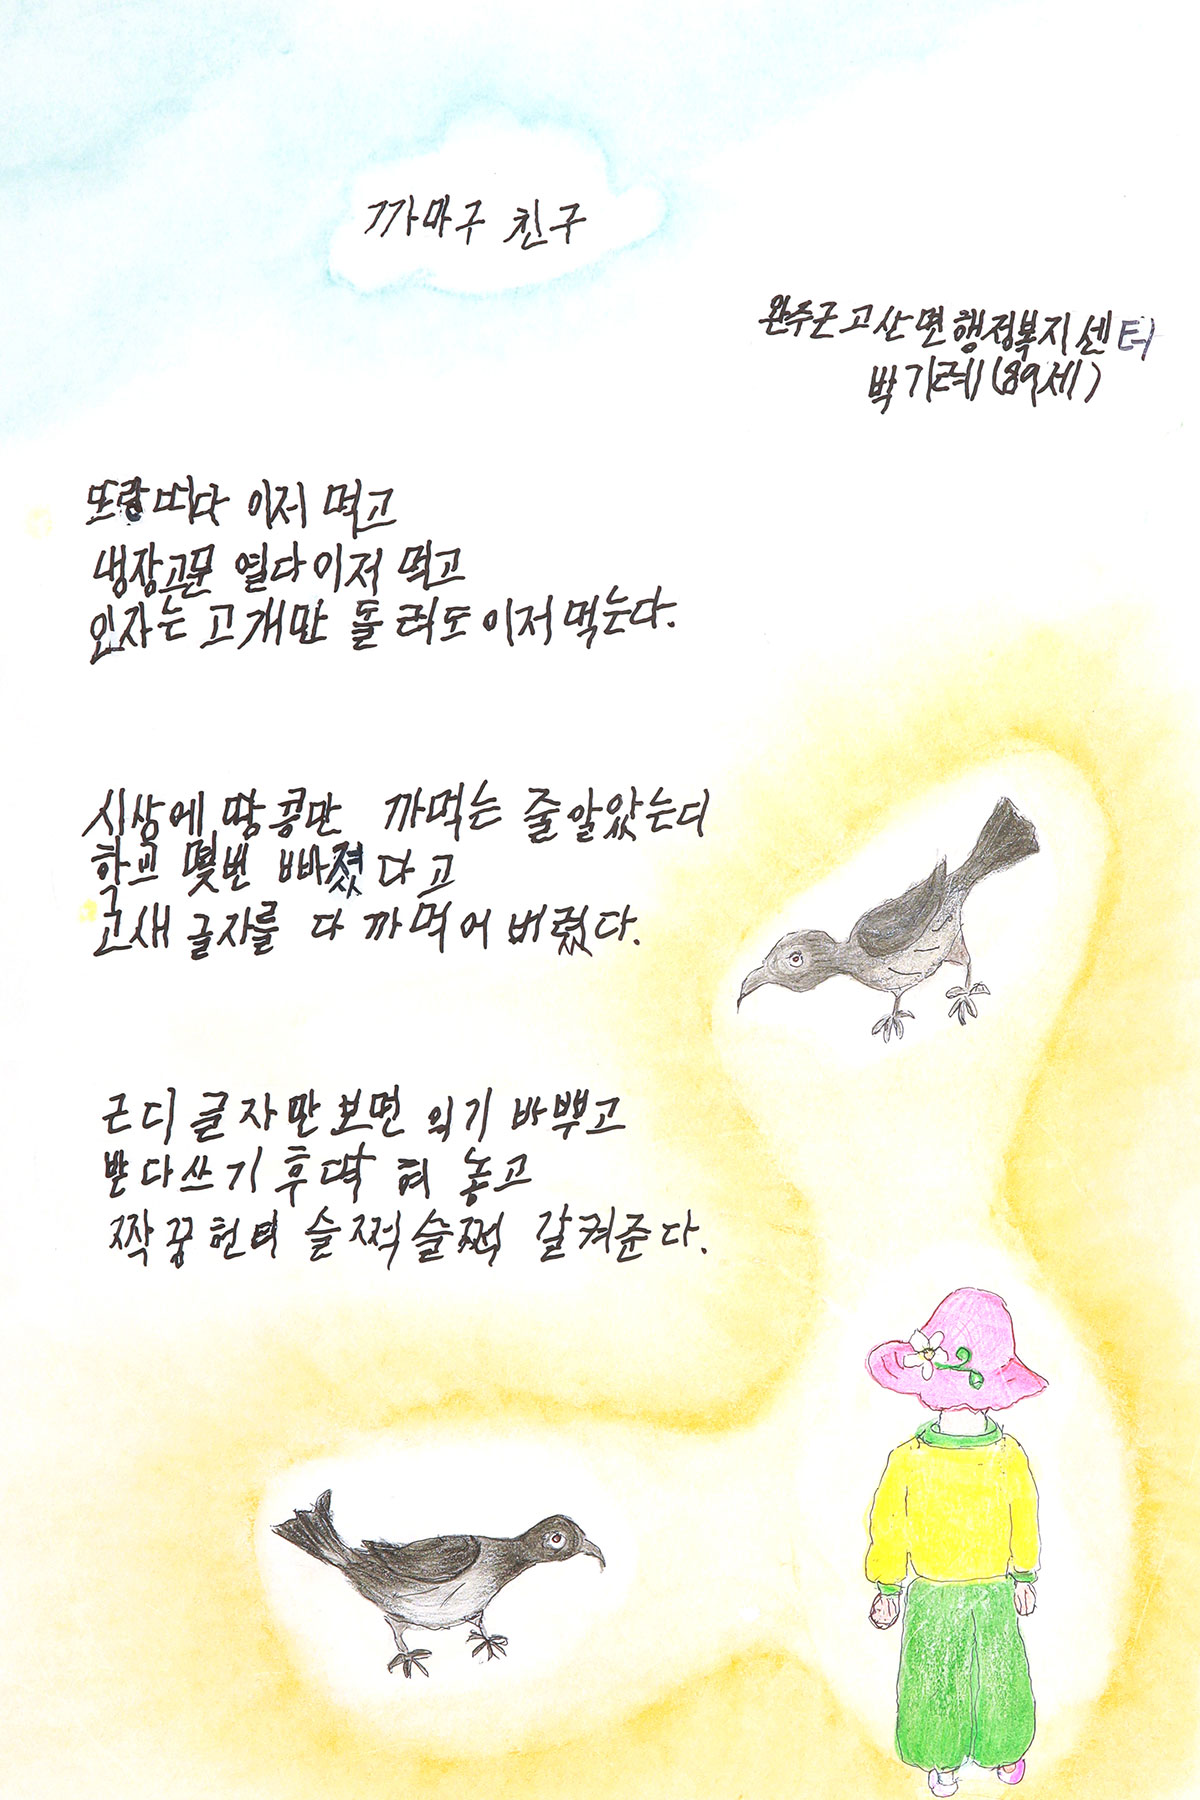 까마구 친구
완주군 고산면 행정복지센터
박기례(89세)
또랑 띠다 이저 먹고
냉장고문 열다 이저 먹고
인자는 고개만 돌려도 이저 먹는다.
시상에 땅콩만 까먹는 줄 알았는디
학교 몇번 빠졌다고
고새 글자를 다 까먹어 버렸다.
근디 글자만 보면 외기 바뿌고
받다쓰기 후딱 혀 놓고
짝꿍헌티 슬쩍슬쩍 갈켜준다.